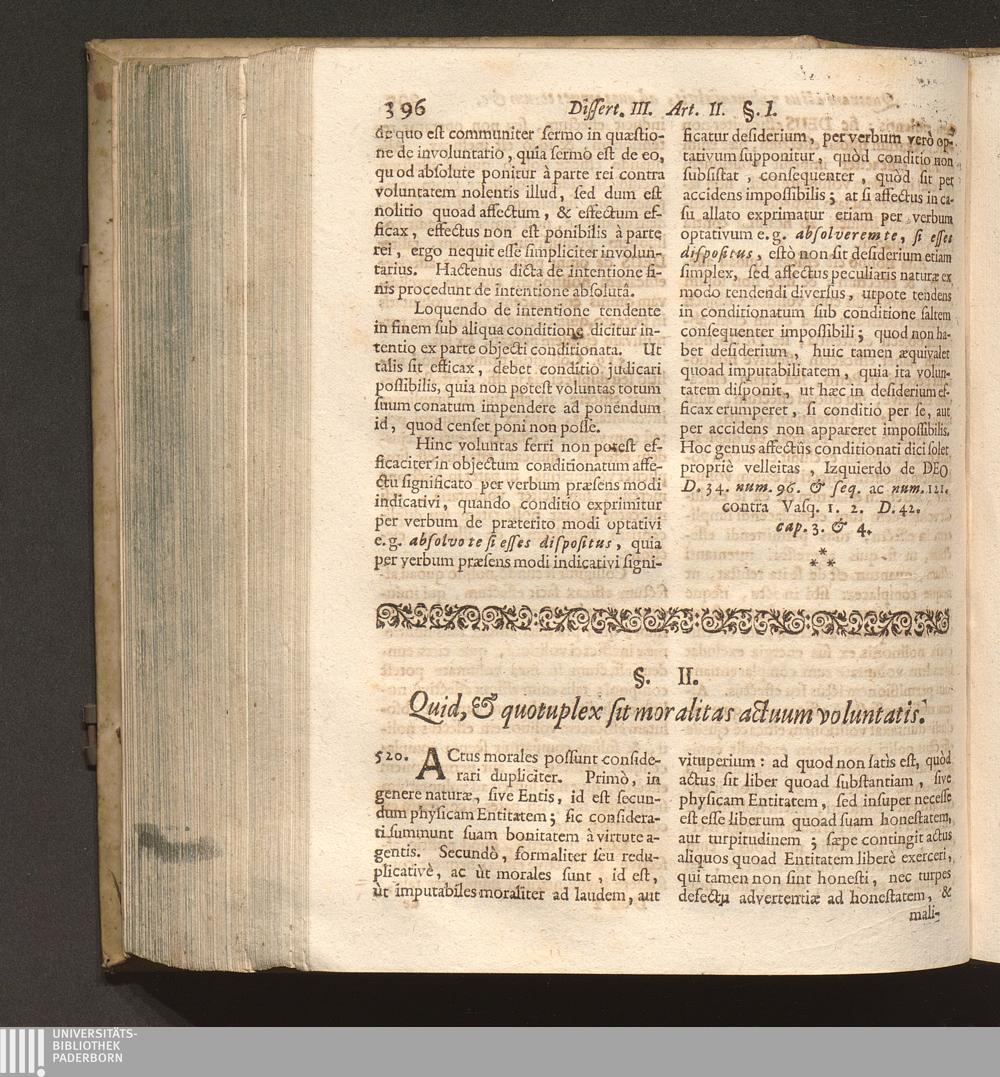 396 Dissert. III. Art. II. §. I.
de quo est communiter sermo in quæstio-
ne de involuntario, quia sermo est de eo,
quod absolute ponitur à parte rei contra
voluntatem nolentis illud, sed dum est
nolitio quoad affectum, & effectum ef-
ficax, effectus non est ponibilis à parte
rei, ergo nequit esse simpliciter involun-
tarius. Hactenus dicta de intentione fi-
nis procedunt de intentione absolutâ.
Loquendo de intentione tendente
in finem sub aliqua conditione dicitur in-
tentio ex parte objecti conditionata. Ut
talis sit efficax, debet conditio judicari
possibilis, quia non potest voluntas totum
suum conatum impendere ad ponendum
id, quod censet poni non posse.
Hinc voluntas ferri non potest ef-
ficaciter in objectum conditionatum affe-
ctu significato per verbum præsens modi
indicativi, quando conditio exprimitur
per verbum de præterito modi optativi
e.g. absolvo te si esses dispositus, quia
per verbum præsens modi indicativi signi-
ficatur desiderium, per verbum verò op-
tativum supponitur, quòd conditio non
subsistat, consequenter, quòd sit per
accidens impossibilis; at si affectus in ca-
su allato exprimatur etiam per verbum
optativum e.g. absolverem te, si esses
dispositus, estò non sit desiderium etiam
simplex, sed affectus peculiaris naturæ ex
modo tendendi diversus, utpote tendens
in conditionatum sub conditione saltem
consequenter impossibili; quod non ha-
bet desiderium, huic tamen æquivalet
quoad imputabilitatem, quia ita volun-
tatem disponit, ut hæc in desiderium ef-
ficax erumperet, si conditio per se, aut
per accidens non appareret impossibilis.
Hoc genus affectûs conditionati dici solet
propriè velleitas, Izquierdo de DEO
D. 34. num. 96. & seq. ac num. 121.
contra Vasq. 1. 2. D. 42.
cap. 3. & 4.
*
* *
§. II.
Quid, & quotuplex sit moralitas actuum voluntatis.
520. ACtus morales possunt conside-
rari dupliciter. Primò, in
genere naturæ, sive Entis, id est secun-
dum physicam Entitatem; sic considera-
ti summunt suam bonitatem à virtute a-
gentis. Secundò, formaliter seu redu-
plicativè, ac ùt morales sunt, id est,
ùt imputabiles moraliter ad laudem, aut
vituperium: ad quod non satis est, quòd
actus sit liber quoad substantiam, sive
physicam Entitatem, sed insuper necesse
est esse liberum quoad suam honestatem,
aut turpitudinem; sæpe contingit actus
aliquos quoad Entitatem liberè exerceri,
qui tamen non sint honesti, nec turpes
defectu advertentiæ ad honestatem, &
mali-
UNIVERSITÄTS-
BIBLIOTHEK
PADERBORN